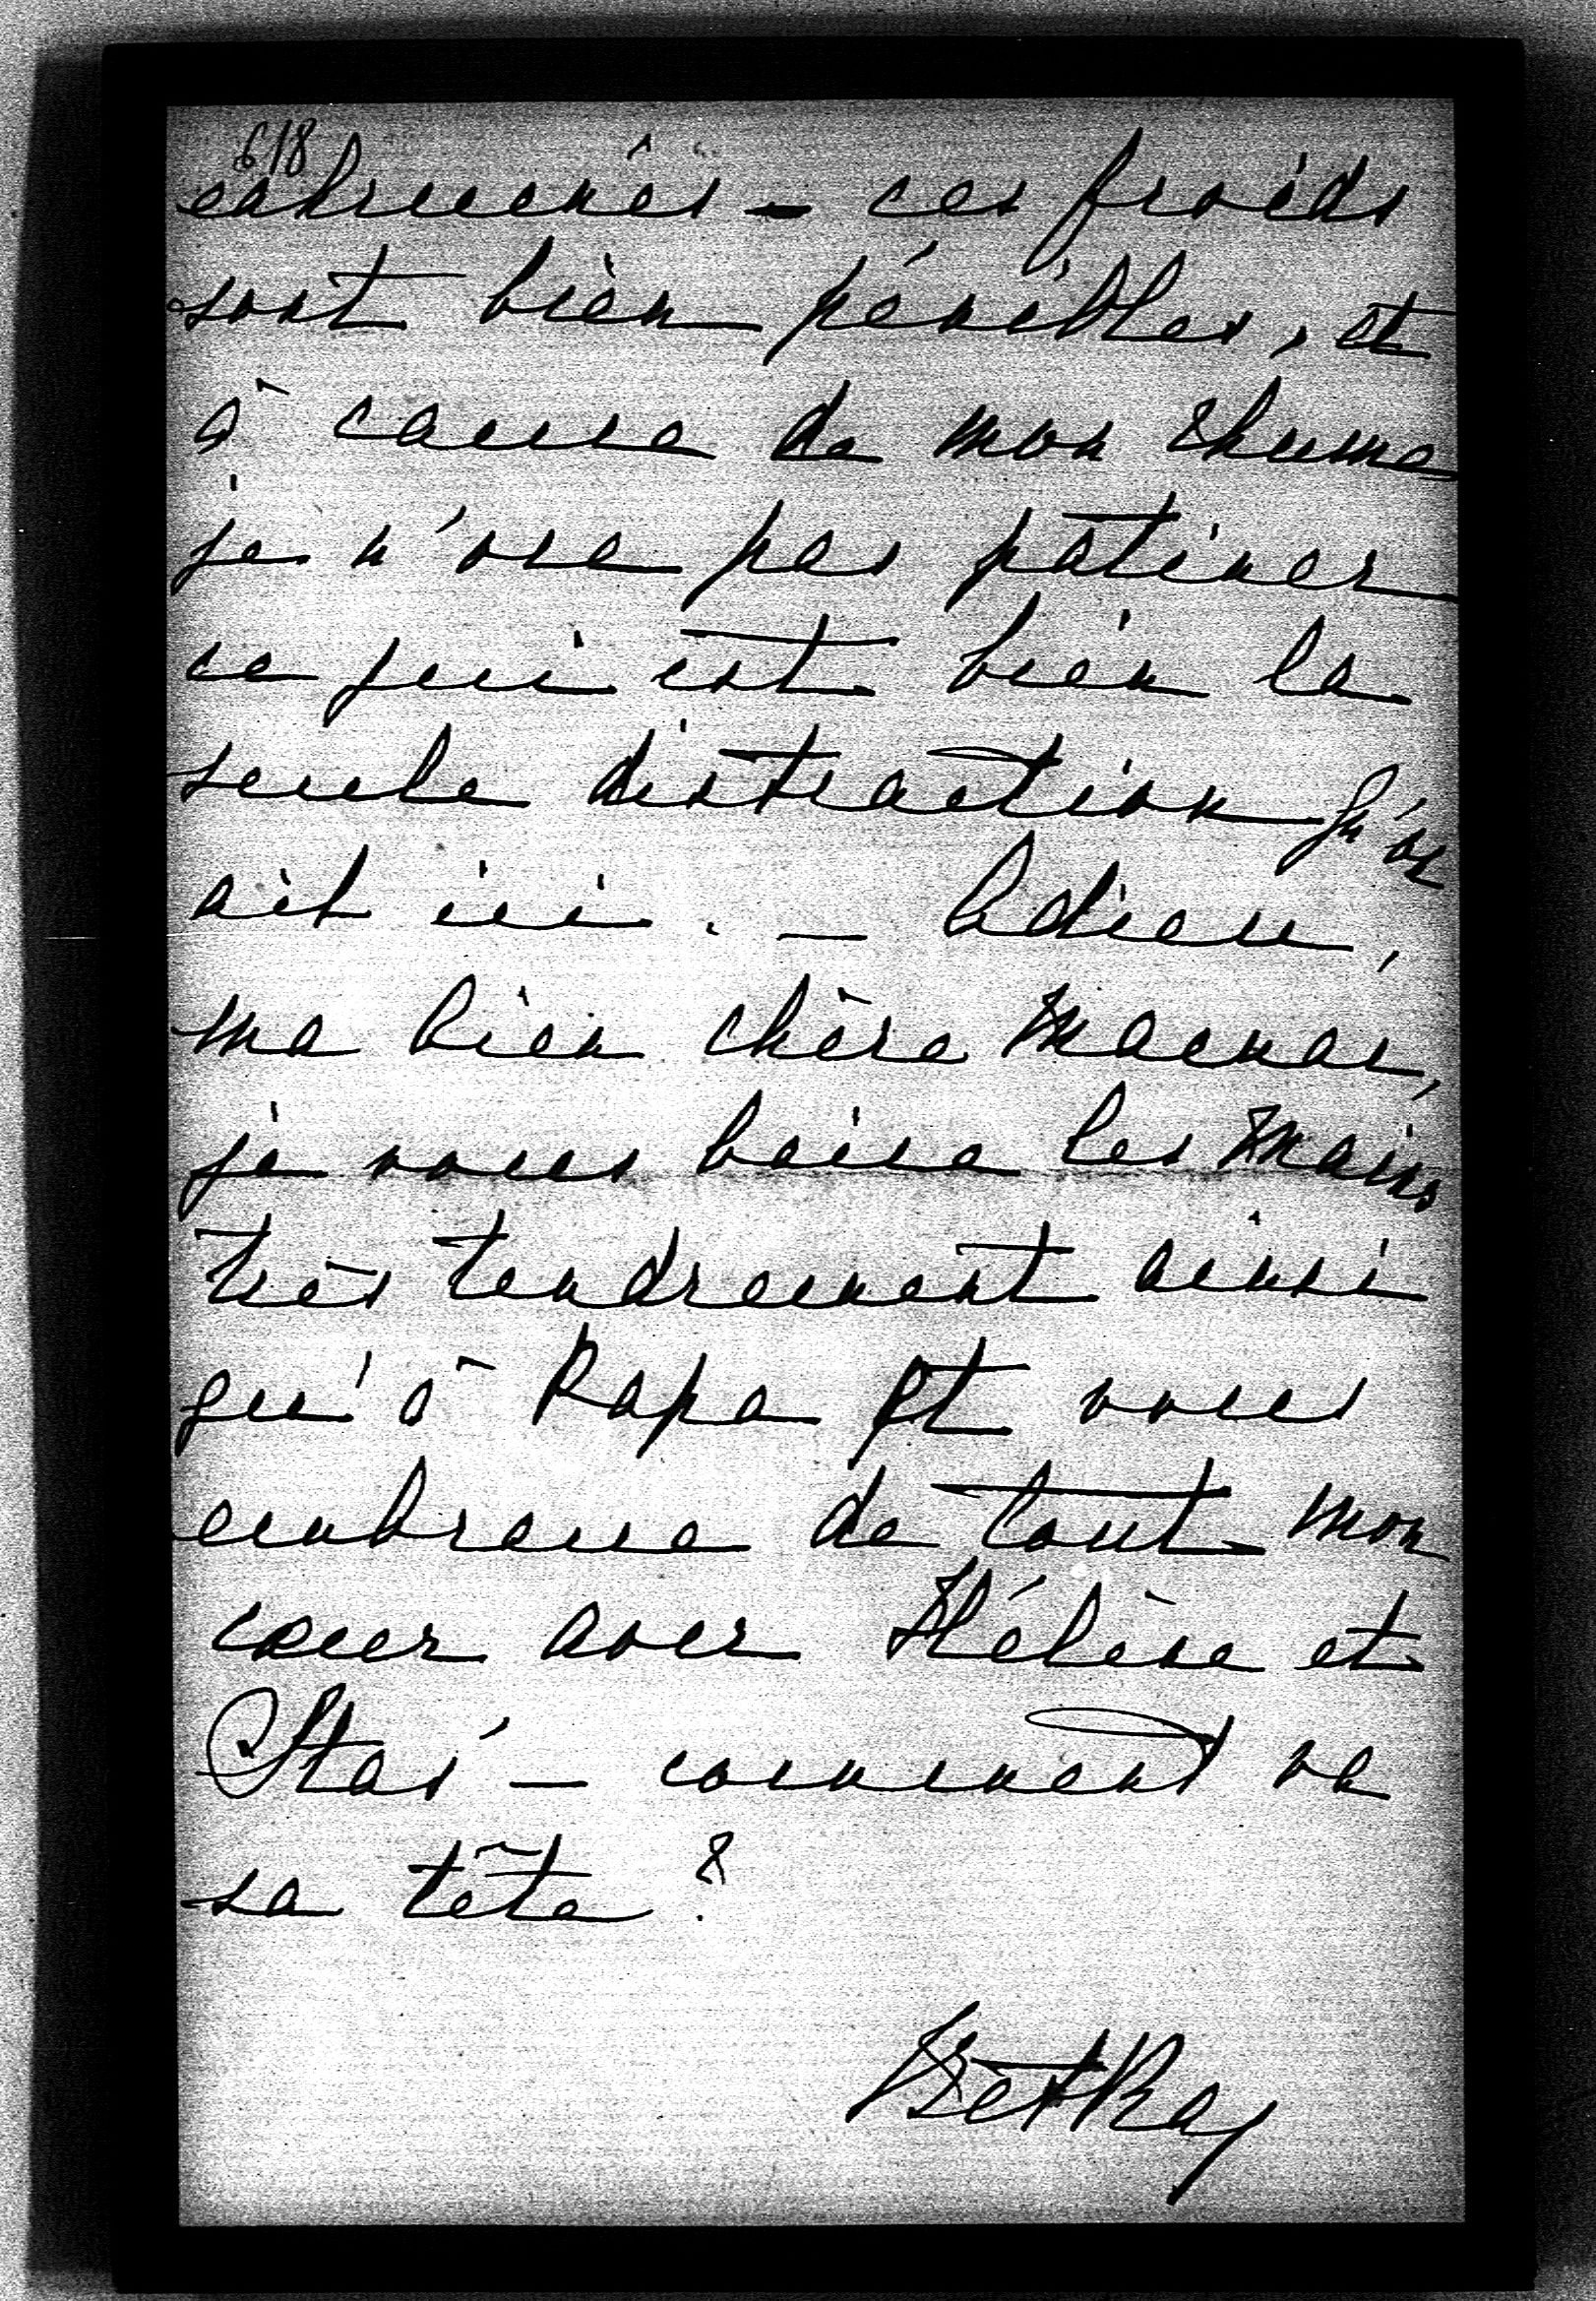 618
enrhumés – ces froids
sont bien pénibles, et
à cause de mon rhume
je n'ose pas patiner
ce qui est bien la
seule distraction qu'on
ait ici. – Adieu,
ma bien chère Maman,
je vous baise les mains
très tendrement ainsi
qu'à Papa et vous
embrasse de tout mon
cœur avec Hélène et
Stas – comment va
sa tête?